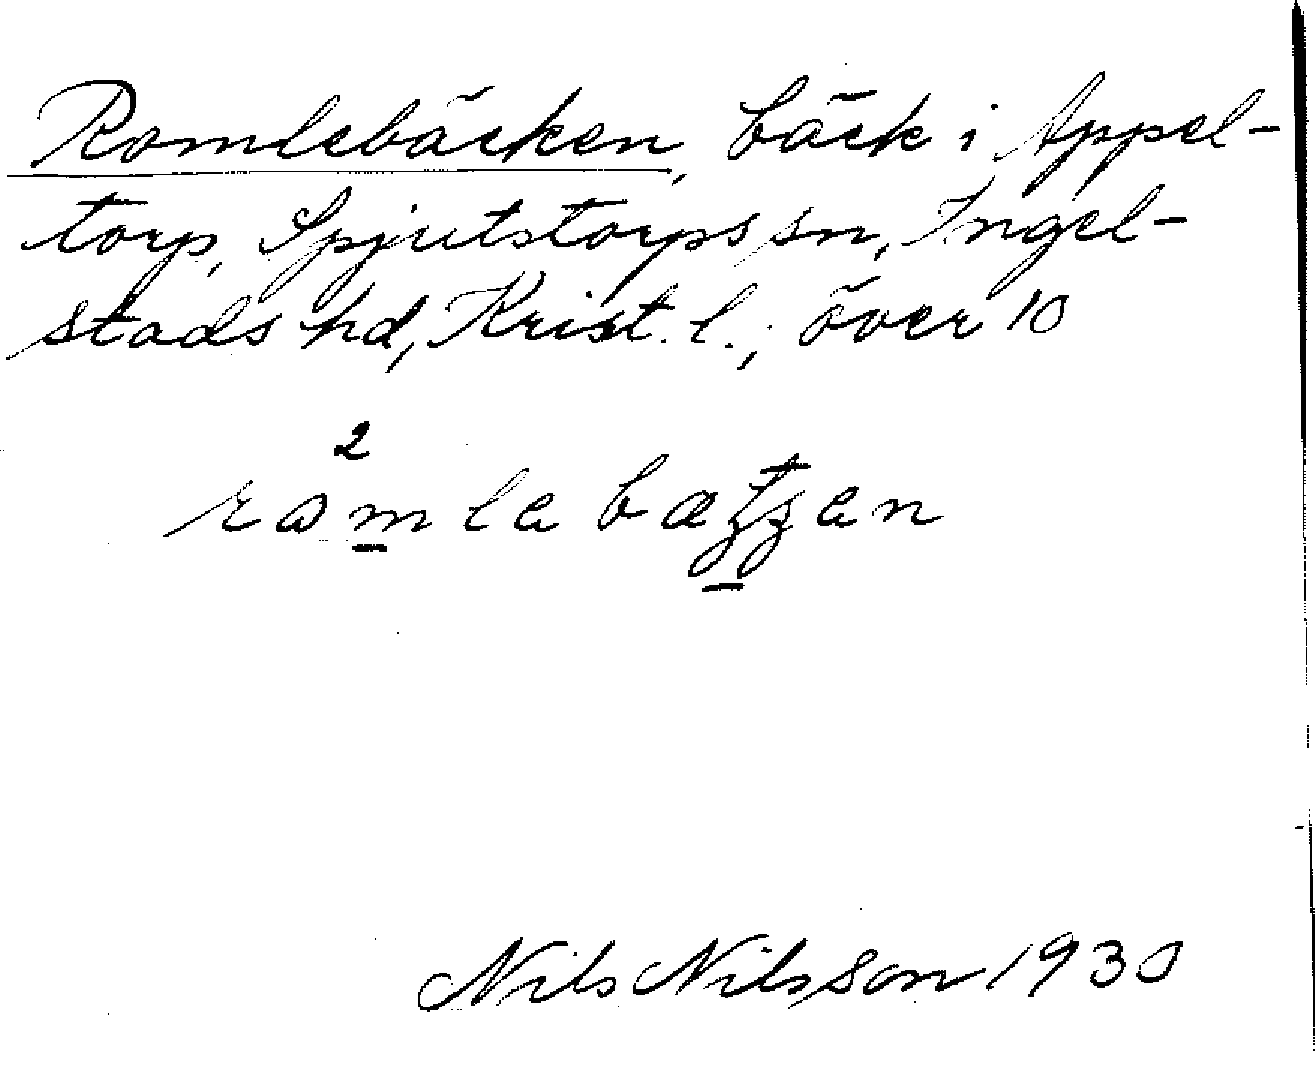 Romlebäcken, bäck i Appel-
torp, Spjutstorps sn, Ingel-
stads hd, Krist. l.; över 10
2
Nils Nilsson 1930